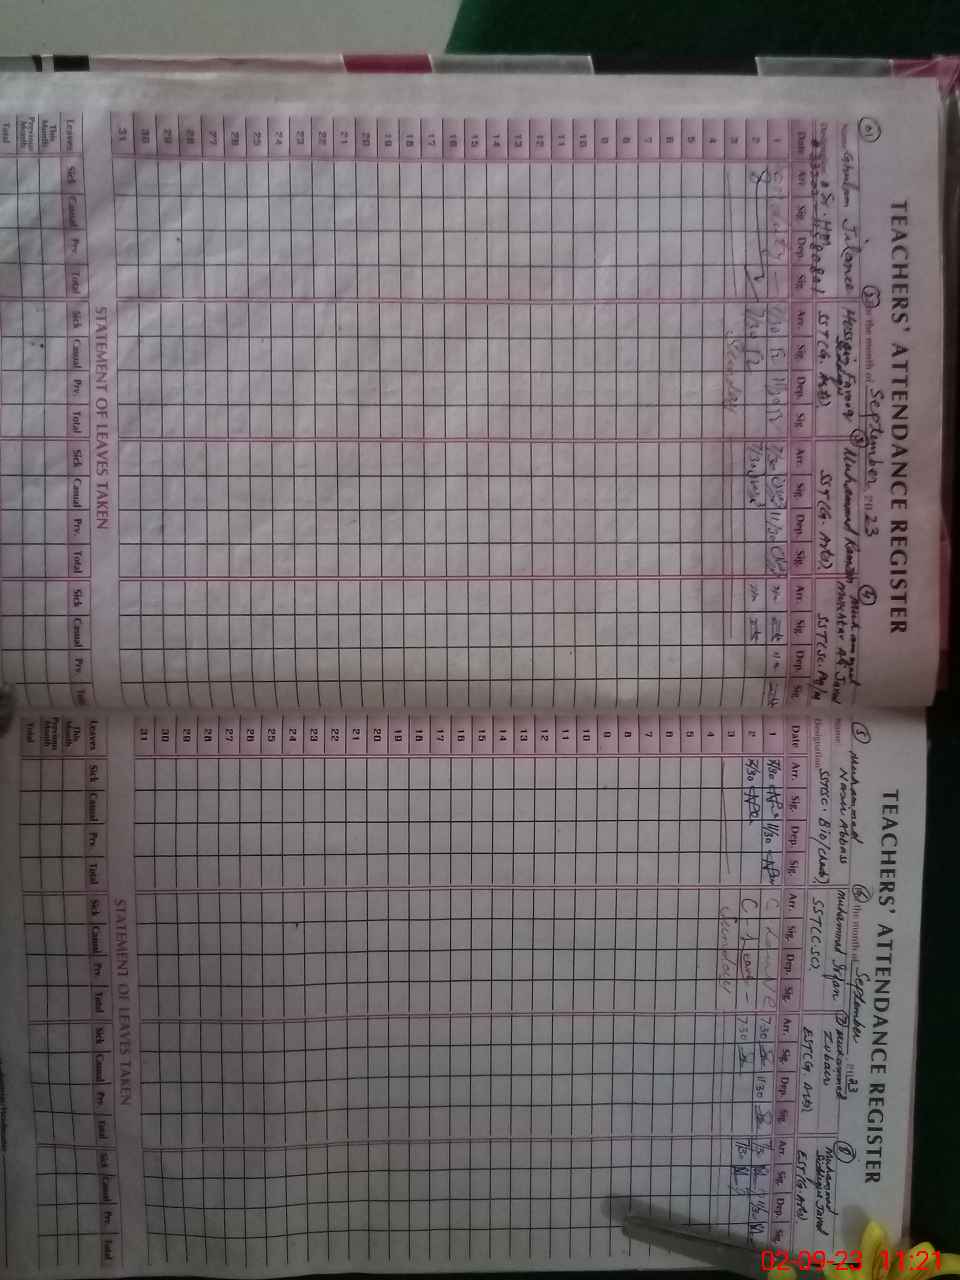 TEACHERS' ATTENDANCE REGISTER
for the month of September 2023
① Name Ghulam Jilanee
② Hussain Farooq
③ Muhammad Ramzan
④ Muhammad Mukhtar Ali Javed
Designation
SST(G. Arts)
SST(G. Arts)
SST(Sc. Phy/M
Date Arr. Sig. Dep. Sig. Arr. Sig. Dep. Sig. Arr. Sig. Dep. Sig. Arr. Sig. Dep. Sig.
1 on duty - 7/30 11/30 7/30 11/30
2 7/30 7/30
3 Sunday
4
5
6
7
8
9
10
11
12
13
14
15
16
17
18
19
20
21
22
23
24
25
26
27
28
29
30
31
STATEMENT OF LEAVES TAKEN
Leaves Sick Casual Prv. Total Sick Casual Prv. Total Sick Casual Prv. Total Sick Casual Prv. Total
This Month
Previous Month
Total
TEACHERS' ATTENDANCE REGISTER
the month of September 2023
⑤ Name Muhammad Nasir Abbass
⑥ Muhammad Irfan
⑦ Muhammad Zubair
⑧ Muhammad Siddique Javed
Designation SST(Sc. Bio/Chem)
SST(CSC)
EST(G. Arts)
EST(G. Arts)
Date Arr. Sig. Dep. Sig. Arr. Sig. Dep. Sig. Arr. Sig. Dep. Sig. Arr. Sig. Dep. Sig.
1 7/30 11/30 C Leave 730 1130 7/30 11/30
2 7/30 C Leave - 730 7/30
3 Sunday
4
5
6
7
8
9
10
11
12
13
14
15
16
17
18
19
20
21
22
23
24
25
26
27
28
29
30
31
STATEMENT OF LEAVES TAKEN
Leaves Sick Casual Prv. Total Sick Casual Prv. Total Sick Casual Prv. Total Sick Casual Prv. Total
This Month
Previous Month
Total
02-09-23 11:21